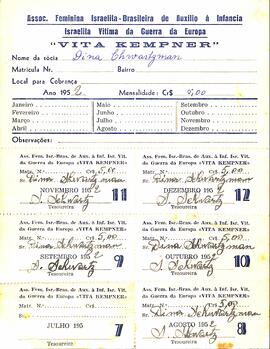 Assoc. Feminina Israelita-Brasileira de Auxilio á Infancia
Israelita Vitima da Guerra da Europa
"VITA KEMPNER"
Nome da sócia Dina Chwartzman
Matrícula Nr. Bairro
Local para Cobrança
Ano 1952 Mensalidade: Cr$ 5,00
Janeiro Maio Setembro
Fevereiro Junho Outubro
Março Julho Novembro
Abril Agosto Dezembro
Observações:
Ass. Fem. Isr.-Bras. de Aux. à Inf. Isr. Vit. da Guerra da Europa «VITA KEMPNER»
Matr. Nr. Cr$ 5,00
Sr. Dina Schwartzman
NOVEMBRO 1952 11
D. Schwartz
Tesoureira
Ass. Fem. Isr.-Bras. de Aux. à Inf. Isr. Vit. da Guerra da Europa «VITA KEMPNER»
Matr. Nr. Cr$ 5,00
Sr. Dina Schwartzman
DEZEMBRO 195 12
D. Schwartz
Tesoureira
Ass. Fem. Isr.-Bras. de Aux. à Inf. Isr. Vit. da Guerra da Europa «VITA KEMPNER»
Matr. Nr. Cr$ 5,00
Sr. Dina Schwartzman
SETEMBRO 1952 9
D. Schwartz
Tesoureira
Ass. Fem. Isr.-Bras. de Aux. à Inf. Isr. Vit. da Guerra da Europa «VITA KEMPNER»
Matr. Nr. Cr$ 5,00
Sr. Dina Schwartzman
OUTUBRO 195 10
D. Schwartz
Tesoureira
Ass. Fem. Isr.-Bras. de Aux. à Inf. Isr. Vit. da Guerra da Europa «VITA KEMPNER»
Matr. Nr. Cr$
Sr.
JULHO 195 7
Tesoureira
Ass. Fem. Isr.-Bras. de Aux. à Inf. Isr. Vit. da Guerra da Europa «VITA KEMPNER»
Matr. Nr. Cr$ 5,00
Sr. Dina Schwartzman
AGOSTO 1952 8
D. Schwartz
Tesoureira